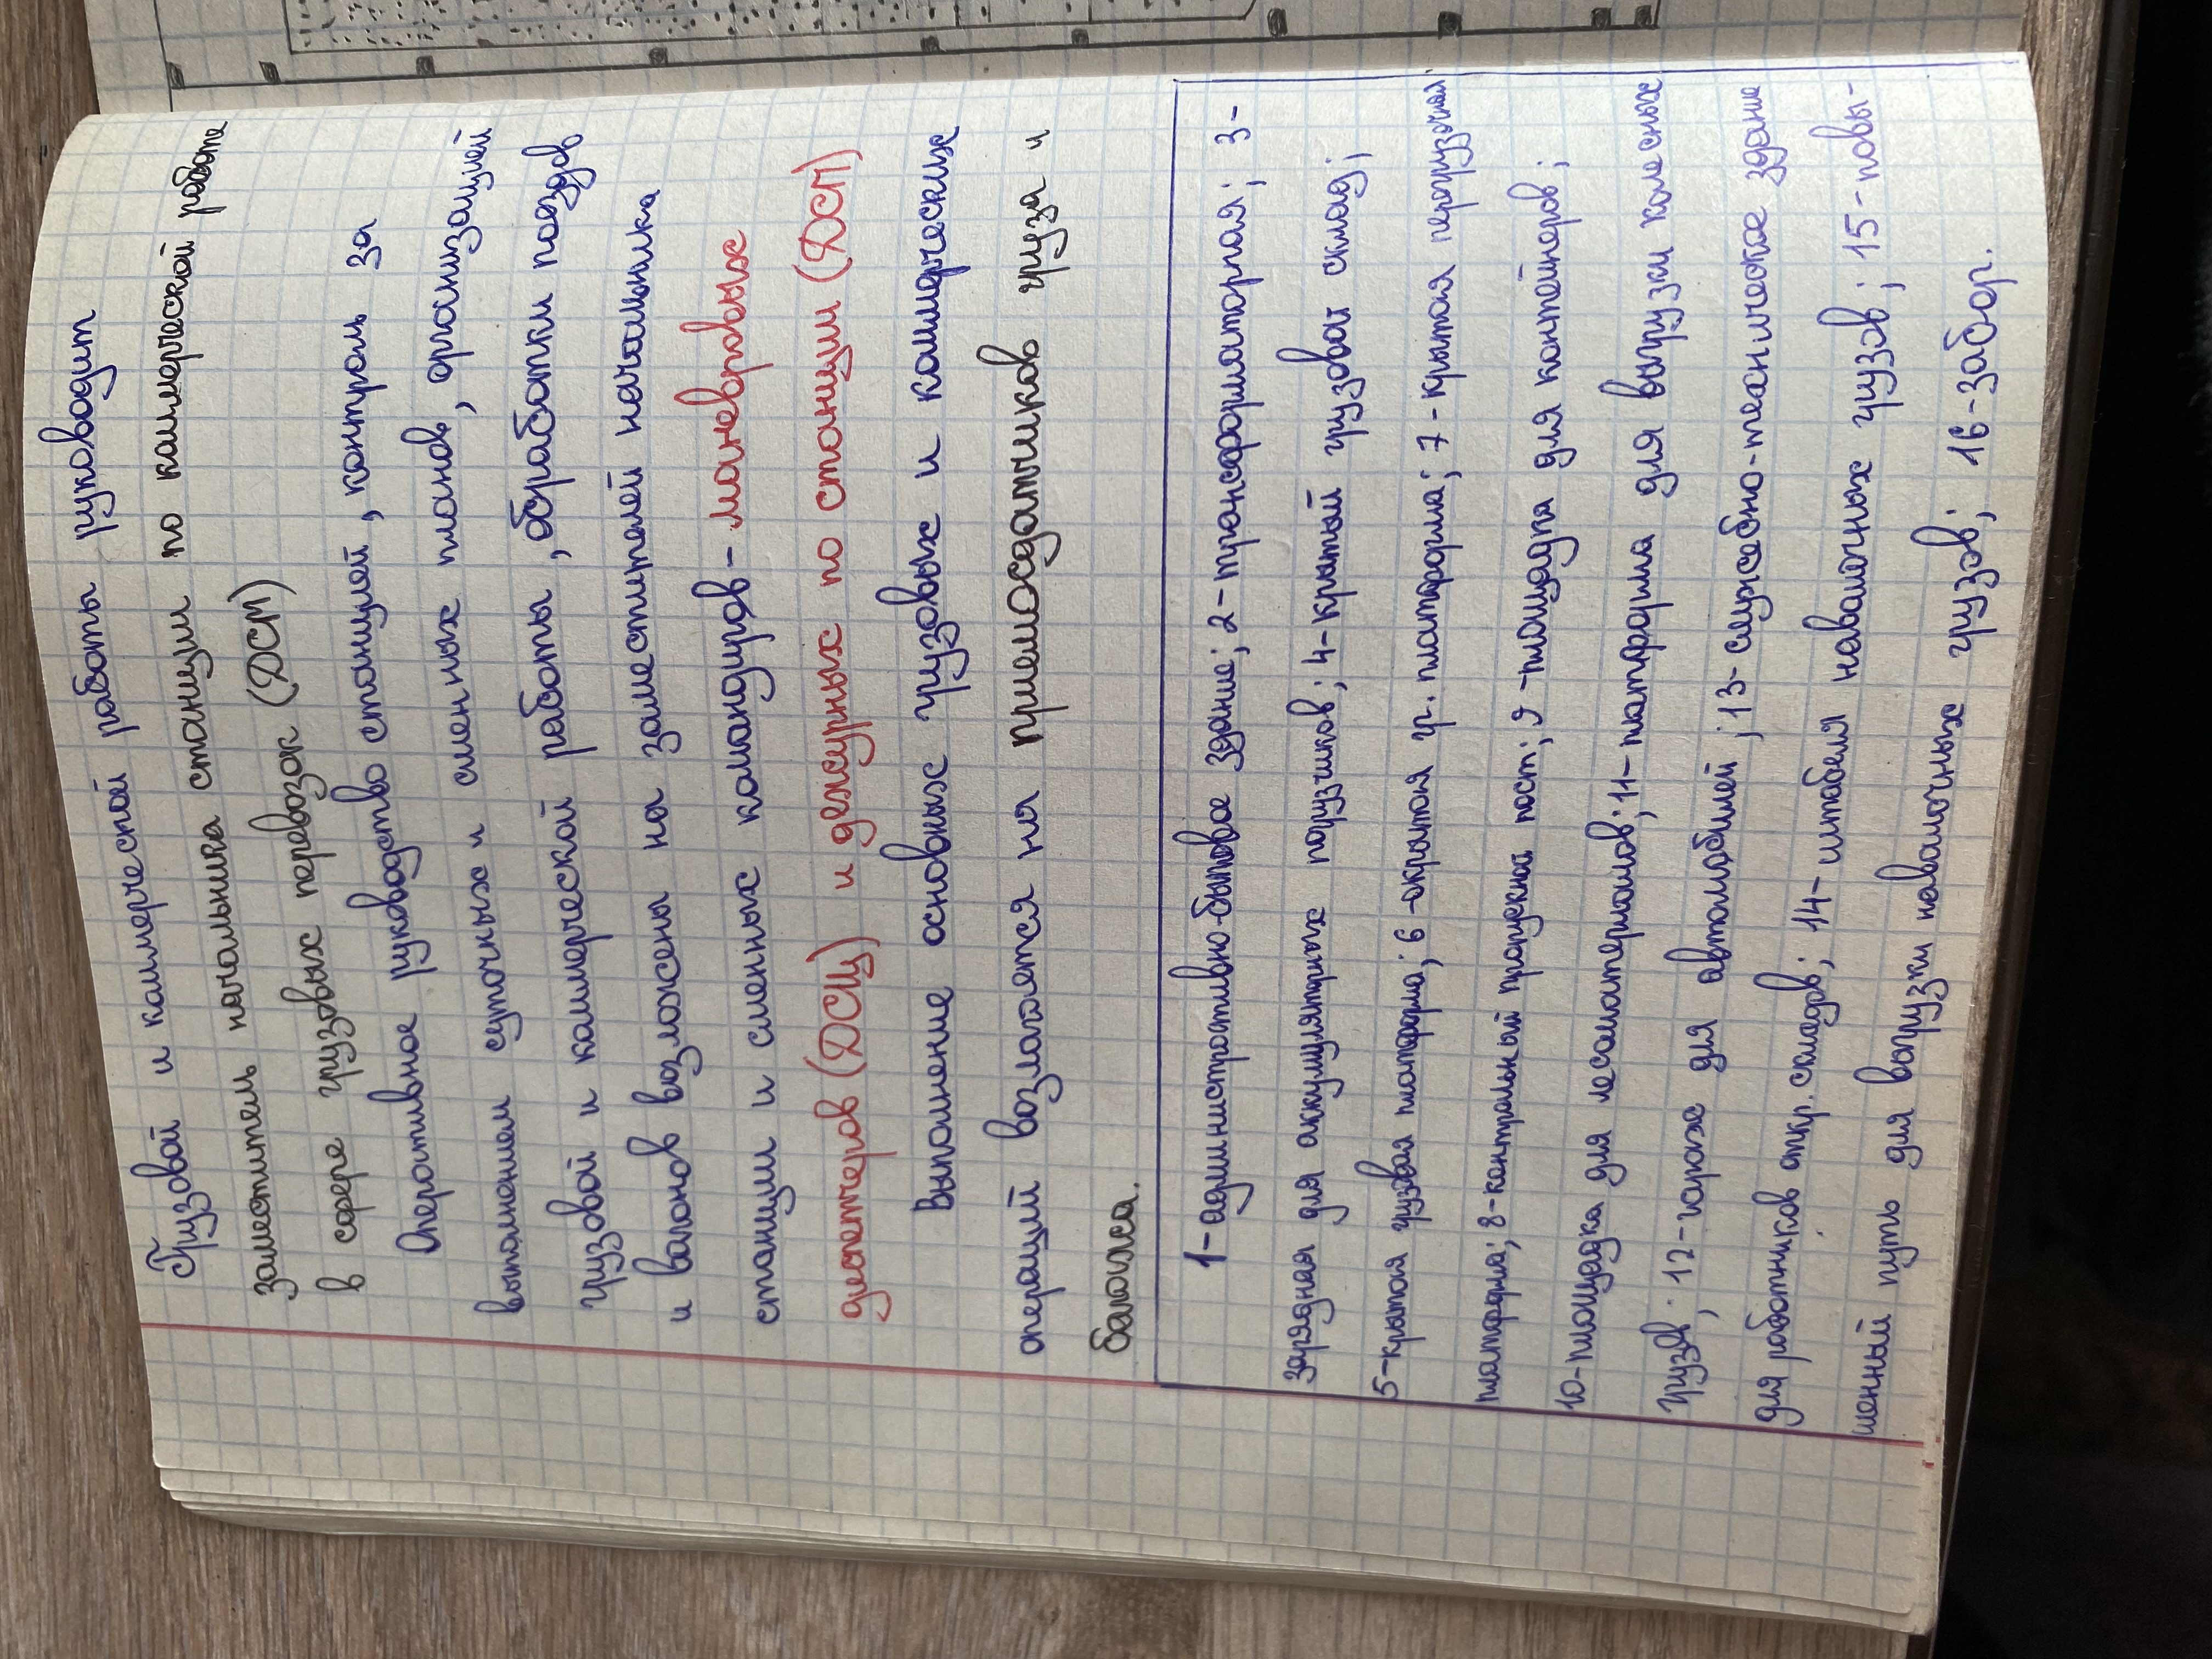 Грузовой и коммерческой работы руководит
заместитель начальника станции по коммерческой работе
в сфере грузовых перевозок (ДСМ)
Оперативное руководство станцией, контроль за
выполнением суточных и сменных планов, организацией
грузовой и коммерческой работы, обработки поездов
и вагонов возложены на заместителей начальника
станции и сменных командиров - маневровых
диспетчеров (ДСЦ) и дежурных по станции (ДСП)
Выполнение основных грузовых и коммерческих
операций возлагается на приемосдатчиков груза и
багажа.
1-административно-бытовое здание; 2-трансформаторная; 3-
зарядная для аккумуляторных погрузчиков; 4-крытый грузовой склад;
5-крытая грузовая платформа; 6-открытая гр. платформа; 7-крытая перегрузочная
платформа; 8-контрольный пропускной пост; 9-площадка для контейнеров;
10-площадка для лесоматериалов; 11-платформа для выгрузки колесных
грузов; 12-гараж для автомобилей; 13-служебно-техническое здание
для работников откр. складов; 14-штабеля навалочных грузов; 15-повы-
шенный путь для выгрузки навалочных грузов; 16-забор.